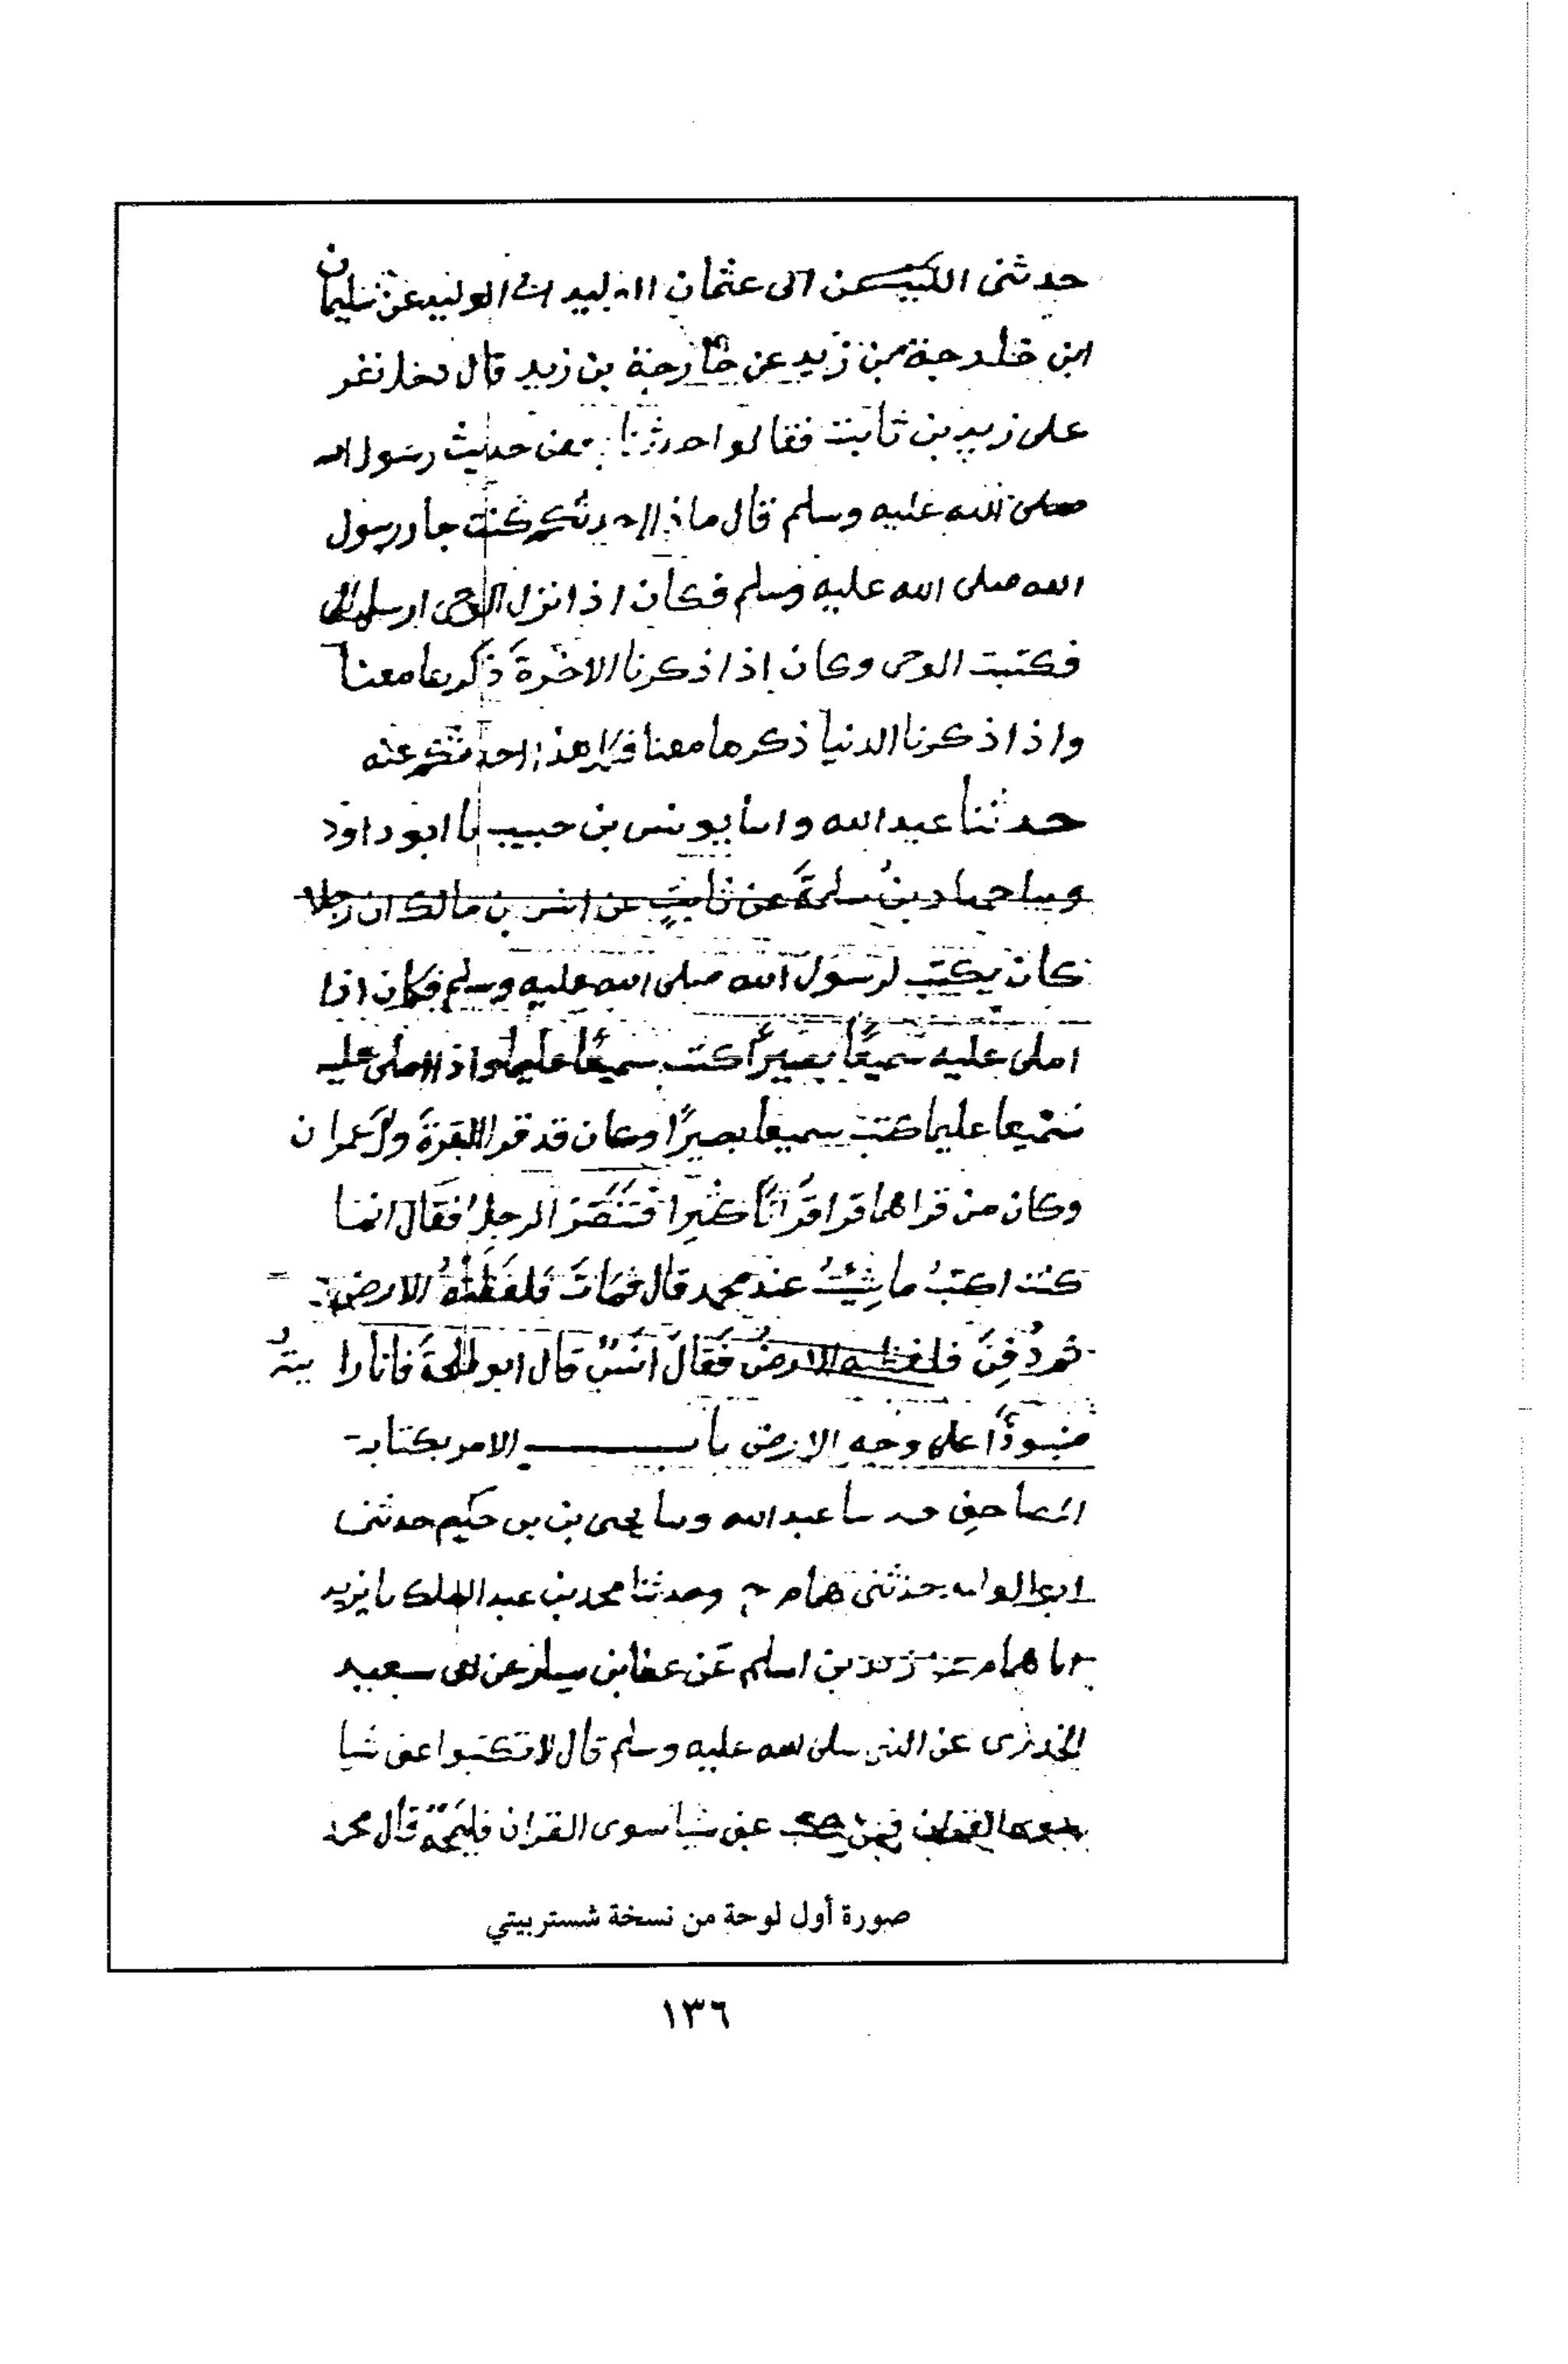 حدثنى الليث عن ابى عثمان الوليد بن ابى الوليد عن سليمان
ابن خارجة بن زيد عن خارجة بن زيد قال دخل نفر
على زيد بن ثابت فقالوا حدثنا بعض حديث رسول الله
صلى الله عليه وسلم قال ماذا احدثكم كنت جار رسول
الله صلى الله عليه وسلم فكان اذا نزل الوحى ارسل الى
فكتبت الوحى وكان اذا ذكرنا الاخرةَ ذكرها معنا
واذا ذكرنا الدنيا ذكرها معنا فكل هذا احدثكم عنه
حدثنا عبد الله يونس بن حبيب نا ابو داود
حماد بن سلمةَ عن ثابتٍ عن انس بن مالك ان رجلا
كان يكتب لرسول الله صلى الله عليه وسلم فكان اذا
املى عليه سميعًا بصيرًا كتب سميعًا عليما واذا املى عليه
سميعا عليما كتب سميعا بصيرًا وكان قد قرا البقرةَ وآل عمران
وكان من قراهما قرا قرآنًا كثيرا فتَنَصَّرَ الرجلُ فقَالَ انما
كنت اكتبُ ما شِئتُ عند محمد قال فمَاتَ فلفَظَتْهُ الارض
ثم دُفِنَ فلفظته الارضُ فَقَالَ انَسٌ قال ابو طلحةَ فانا رايتهُ
منبوذًا على وجه الارض باب الامر بكتابة
المصاحف عبد الله يحيى بن حكيم حدثنى
ابو الوليد حدثنى همام ح وحدثنا محمد بن عبد الملك نا يزيد
انا همام عن زيد بن اسلم عَن عطا بن يسار عن ابى سعيد
الخدرى عن النبى صلى الله عليه وسلم قال لا تكتبوا عنى شيا
القران فمن كتب عنى شيا سوى القران فليَمحُهُ قال محمد
صورة أول لوحة من نسخة شستربيتي
١٣٦